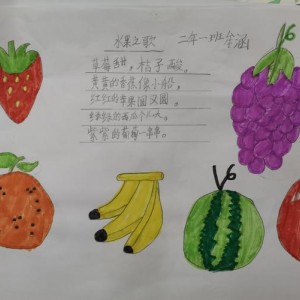 水果之歌 二年一班
草莓甜，桔子酸。
黄黄的香蕉像小船，
红红的苹果圆又圆。
绿绿的西瓜
紫紫的葡萄一串串。